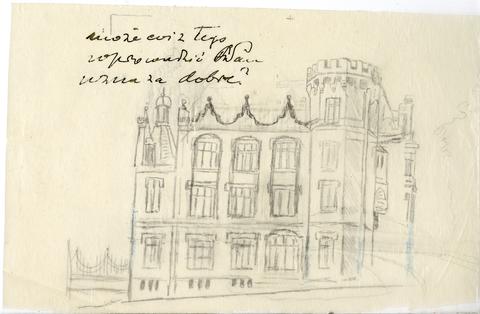 może coś z tego
wprowadzić Pan
uzna za dobre?